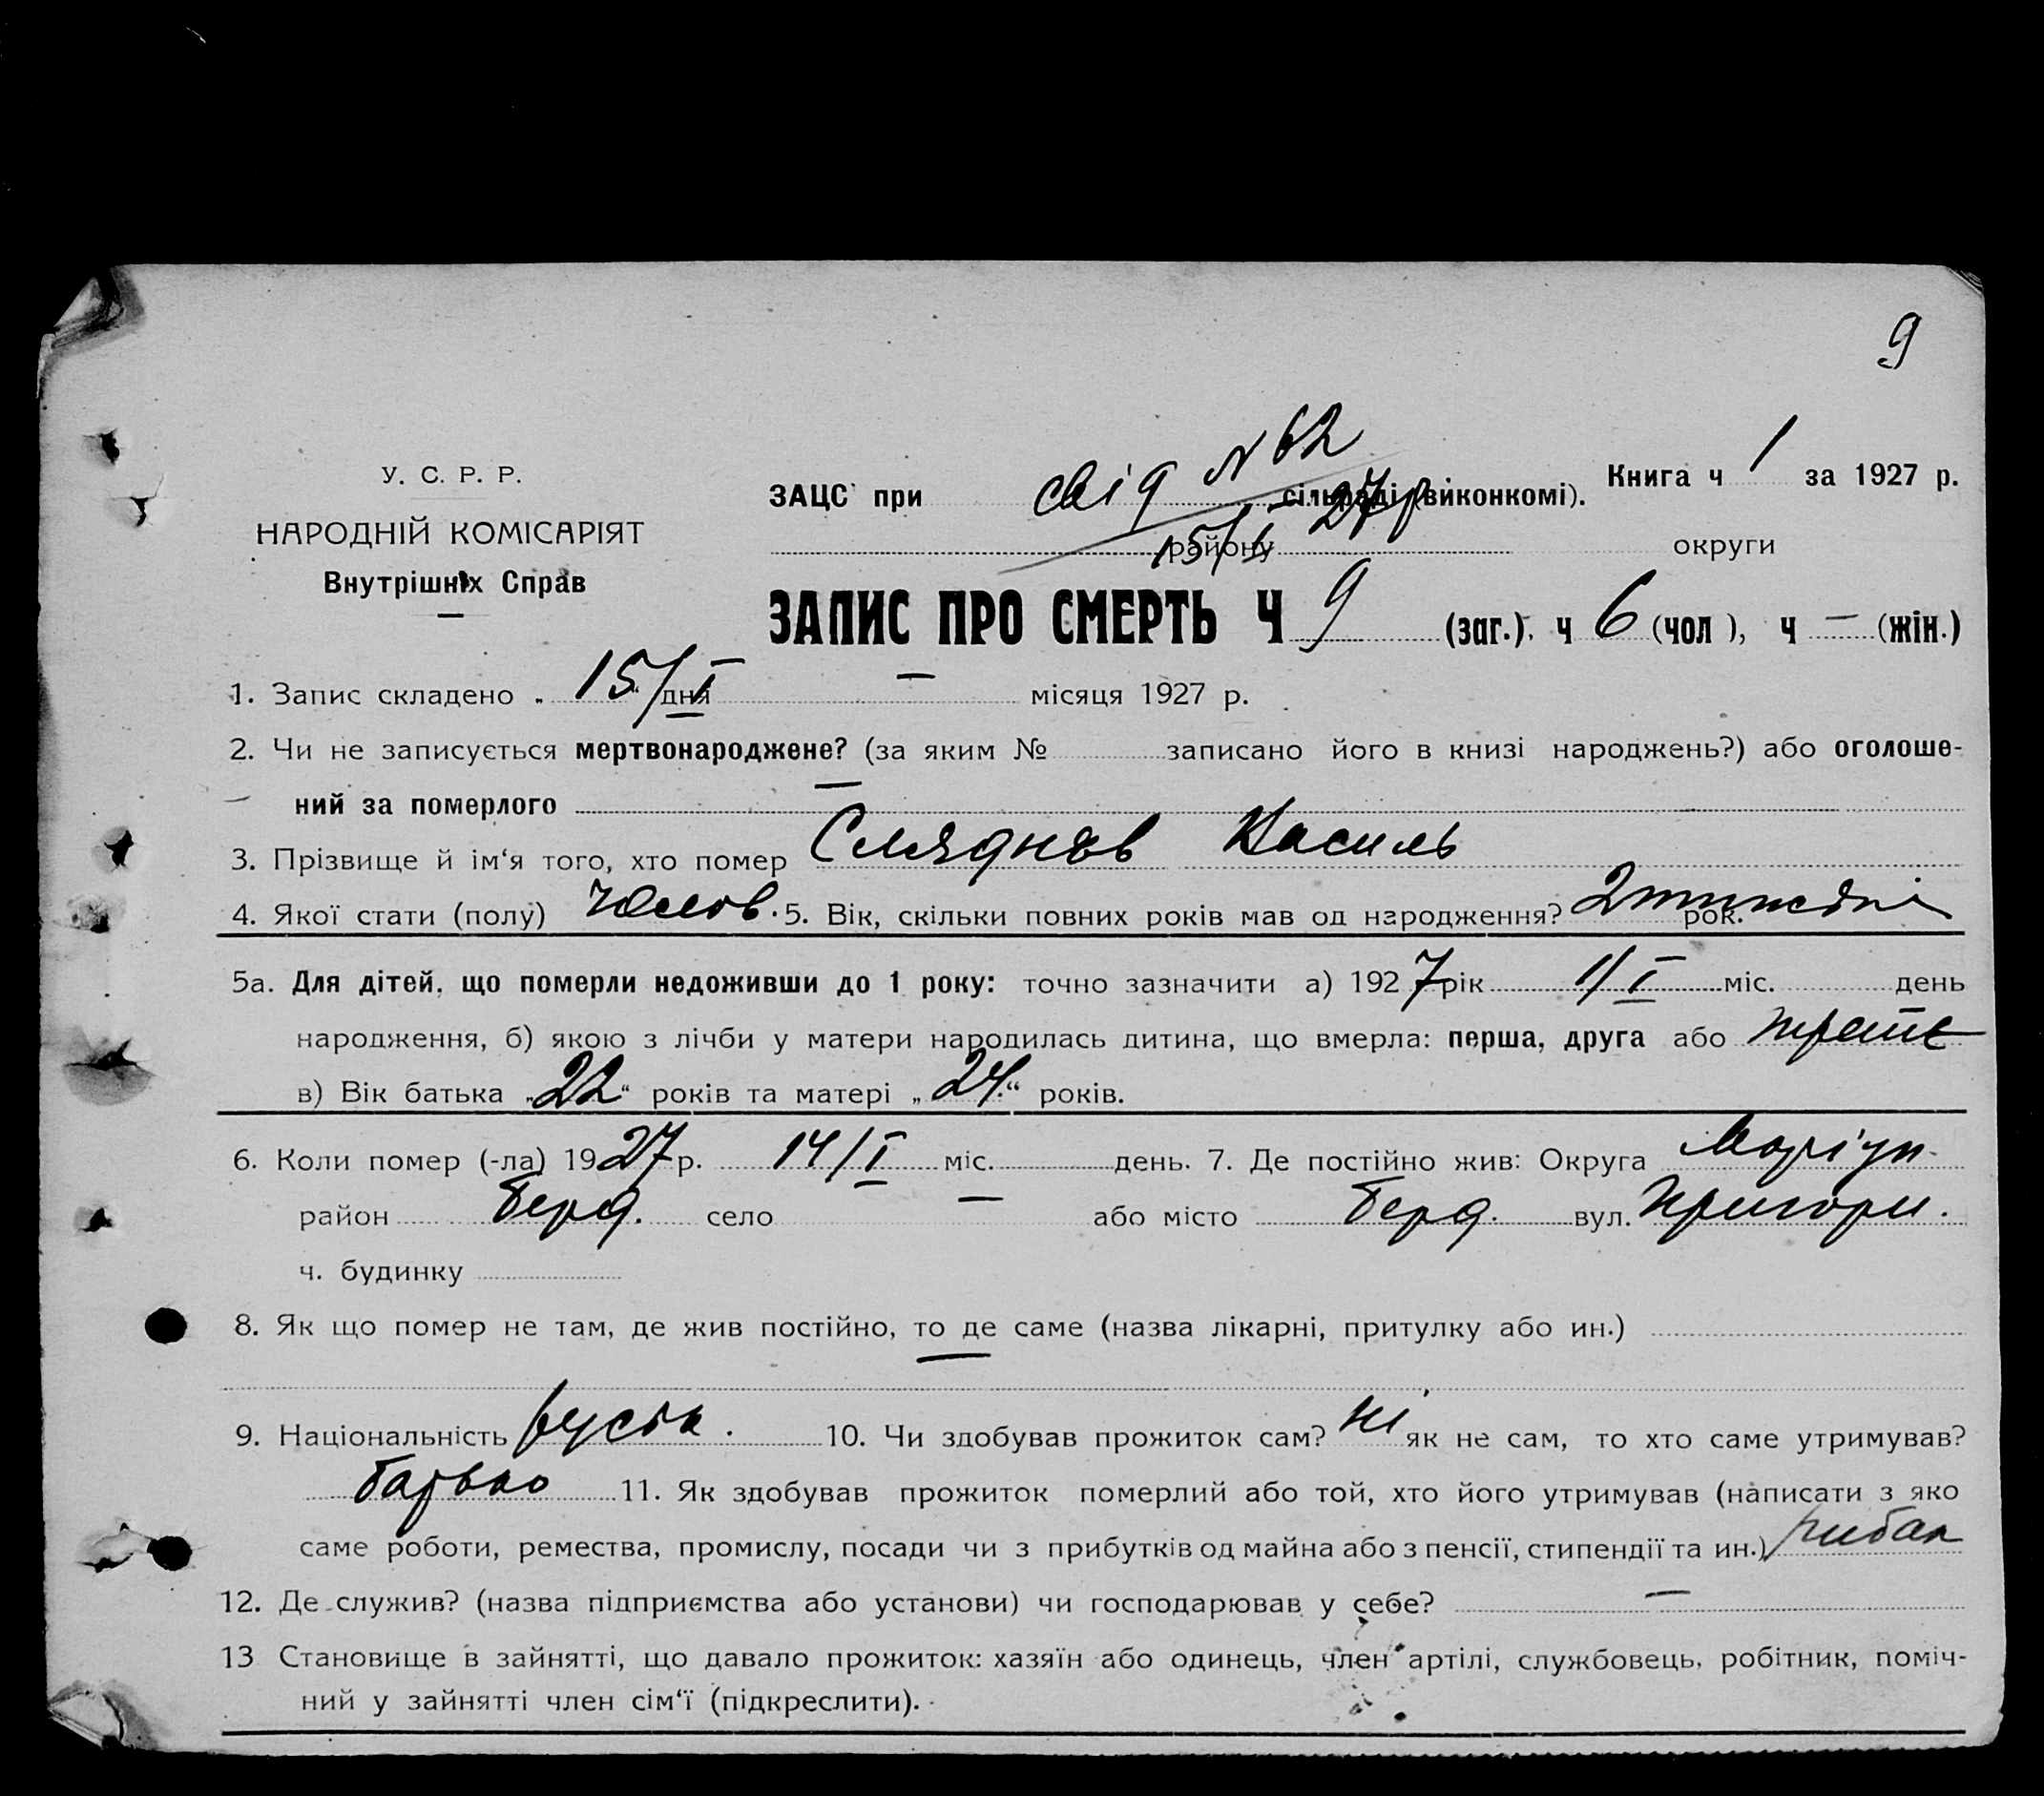 9
свід N 62
У. С. Р. Р.
ЗАЦС при сільраді (виконкомі). Книга ч 1 за 1927 р.
15/I 27 р
НАРОДНІЙ КОМІСАРІЯТ
району округи
Внутрішніх Справ
ЗАПИС ПРО СМЕРТЬ Ч 9 (заг.), ч 6 (чол ), ч — (жін.)
1. Запис складено „ 15/I “ дня — місяця 1927 р.
2. Чи не записується мертвонароджене? (за яким № записано його в книзі народжень?) або оголоше-
ний за померлого —
3. Прізвище й ім‘я того, хто помер Сляднєв Василь
4. Якої стати (полу) Чолов. 5. Вік, скільки повних років мав од народження? 2 тижні рок.
5а. Для дітей, що померли недоживши до 1 року: точно зазначити а) 1927 рік 1/I міс. день
народження, б) якою з лічби у матери народилась дитина, що вмерла: перша, друга або третє
в) Вік батька „22“ років та матері „24“ років.
6. Коли помер (-ла) 1927 р. 14/I міс. день. 7. Де постійно жив: Округа Маріуп.
район Берд. село — або місто Берд. вул. Пригори.
ч. будинку
8. Як що помер не там, де жив постійно, то де саме (назва лікарні, притулку або ин.)
—
9. Національність руськ. 10. Чи здобував прожиток сам? Ні як не сам, то хто саме утримував?
батько 11. Як здобував прожиток померлий або той, хто його утримував (написати з яко
саме роботи, ремества, промислу, посади чи з прибутків од майна або з пенсії, стипендії та ин.) рибал
12. Де служив? (назва підприємства або установи) чи господарював у себе? —
13 Становище в зайнятті, що давало прожиток: хазяїн або одинець, член артілі, службовець, робітник, поміч-
ний у зайнятті член сім‘ї (підкреслити).